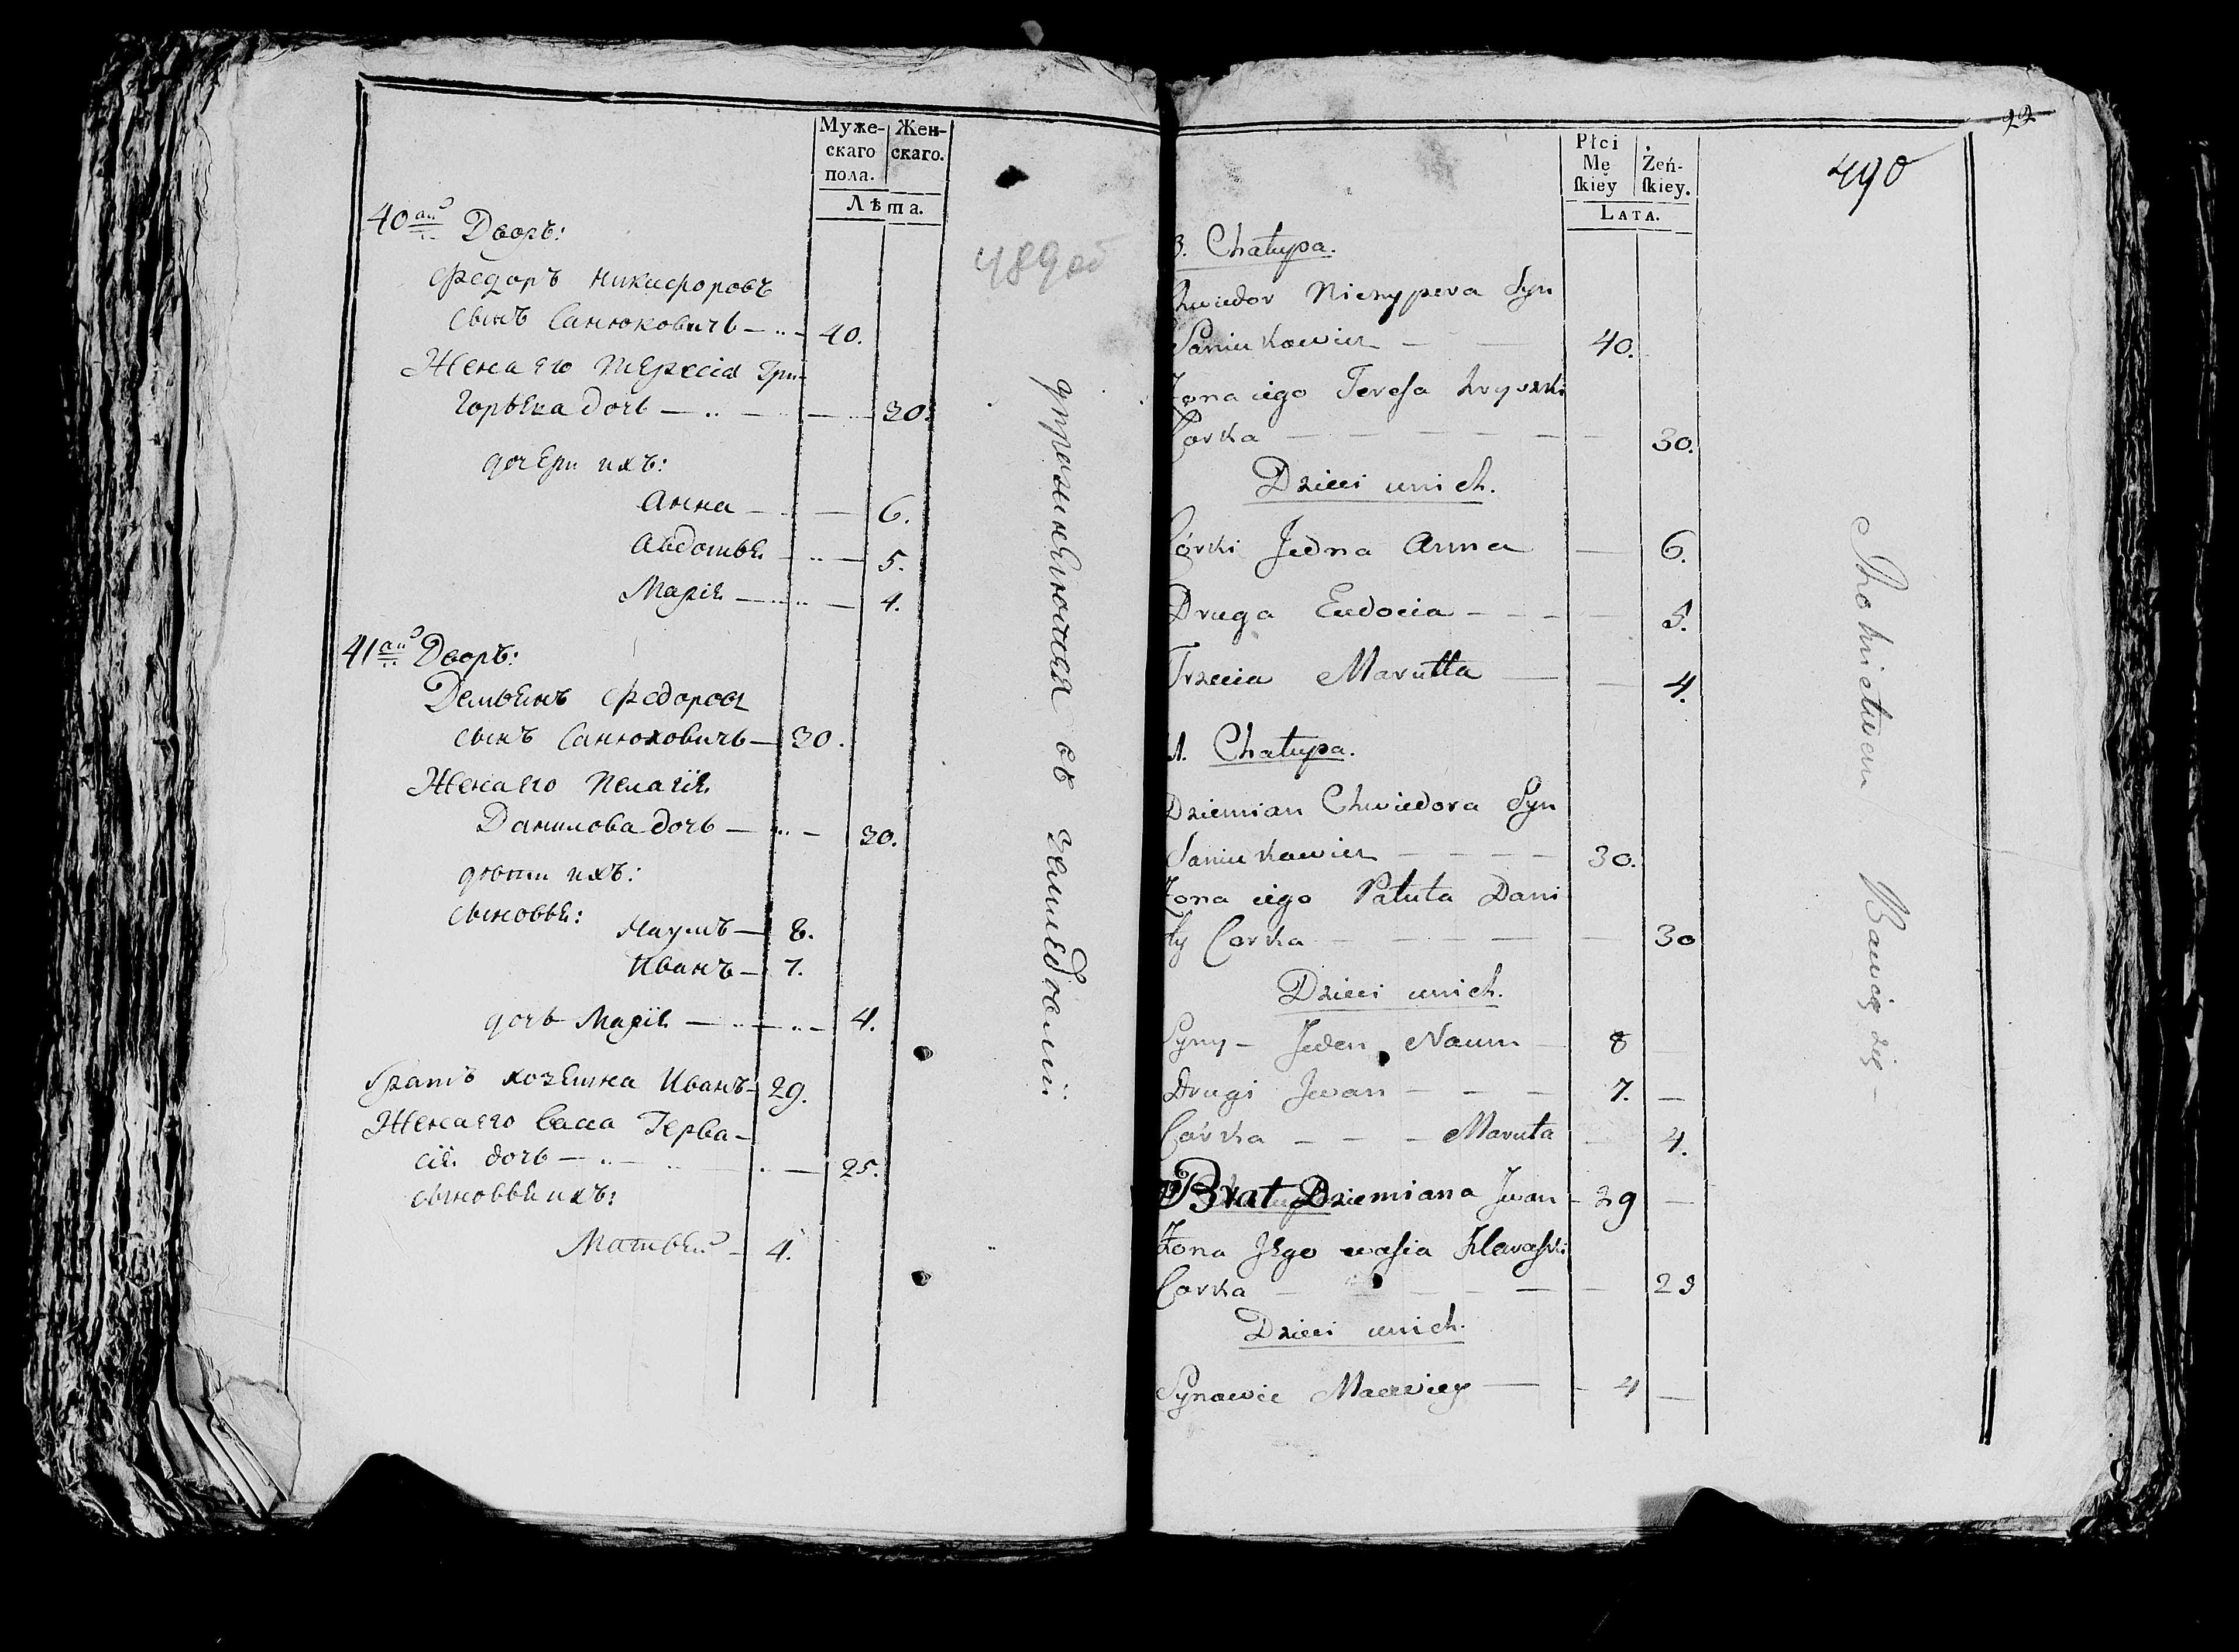 Муже-
скаго
пола.
Жен-
скаго.
Лѣта.
40ай Дворъ:
Федоръ Никифоровъ
сынъ Санюковичь — 40.
Жена его Тересiя Гри-
горьева дочь — 30.
дочери ихъ:
Анна — 6.
Авдотья — 5.
Марiя — 4.
41ай Дворъ:
Демьянъ Федоровъ
сынъ Санюковичь — 30.
Жена его Пелагiя
Данилова дочь — 30.
дѣти ихъ:
сыновья:
Наумъ — 8.
Иванъ — 7.
дочь Марiя — 4.
Братъ хозяина Иванъ — 29.
Жена его Васса Герва-
сiя дочь — 25.
сыновья ихъ:
Матвей — 4.
489
упражняются въ земледѣлiи.
22
490
Płci
Mę
skiey
Żeń-
skiey.
LATA.
Chałupa.
Chwiedor Nieczypera Syn
Saniukowicz — 40.
Żona iego Teresa Hryszki
Corka — 30.
Dzieci u nich.
Córki Jedna Anna — 6.
Druga Eudocia — 5.
Trzecia Marutta — 4.
Chałupa.
Dziemian Chwiedora Syn
Saniukowicz — 30.
Żona iego Pałuta Dani
ły Corka — 30
Dzieci u nich.
Syny — Jeden Naum — 8
Drugi Jwan — 7.
Córka — Maruta 4.
Brat Dziemiana Jwan — 29
Żona Jego wasia
Corka — 25
Dzieci u nich.
Synowie Maciey — 4
Bawią się —